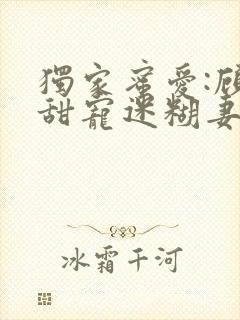 獨家蜜愛:顧
甜寵迷糊妻
冰霜千河